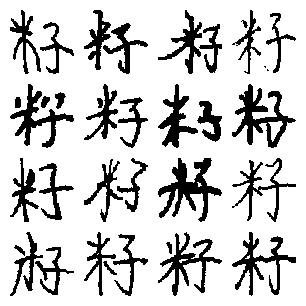 籽籽籽籽
籽籽籽籽
籽籽籽籽
籽籽籽籽